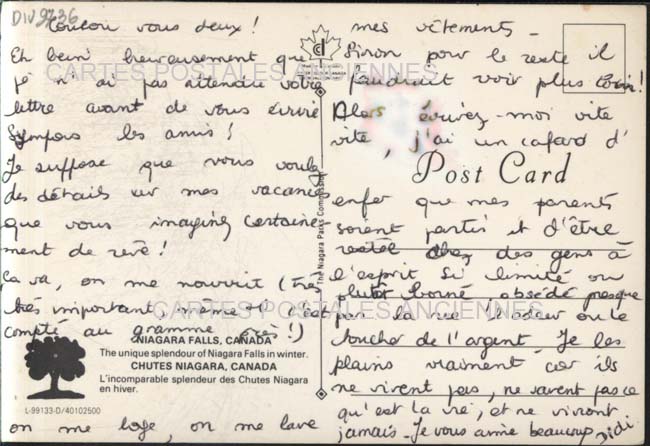 DIV 9736
Coucou vous deux !
Eh bein heureusement que
je n'ai pas attendu votre
lettre avant de vous écrire
sympas les amis !
Je suppose que vous voulez
des détails sur mes vacances
que vous imaginez certaine
ment de rêve !
Ça va, on me nourrit (très
très important même si c'est
compté au gramme près !)
NIAGARA FALLS, CANADA
The unique splendour of Niagara Falls in winter.
CHUTES NIAGARA, CANADA
L'incomparable splendeur des Chutes Niagara
en hiver.
L-99133-D/40102500
on me loge, on me lave
The Niagara Parks Commission
mes vêtements -
Sinon pour le reste il
faudrait voir plus loin !
Alors écrivez-moi vite
vite, j'ai un cafard d'
Post Card
enfer que mes parents
soient partis et d'être
restée chez des gens à
l'esprit si limité ou
plutôt borné obsédé presque
par la
ou le
toucher de l'argent. Je les
plains vraiment car ils
ne vivent pas, ne savent pas ce
qu'est la vie, et ne vivront
jamais - Je vous aime beaucoup
Didi
CARTES POSTALES ANCIENNES
CARTES POSTALES ANCIENNES